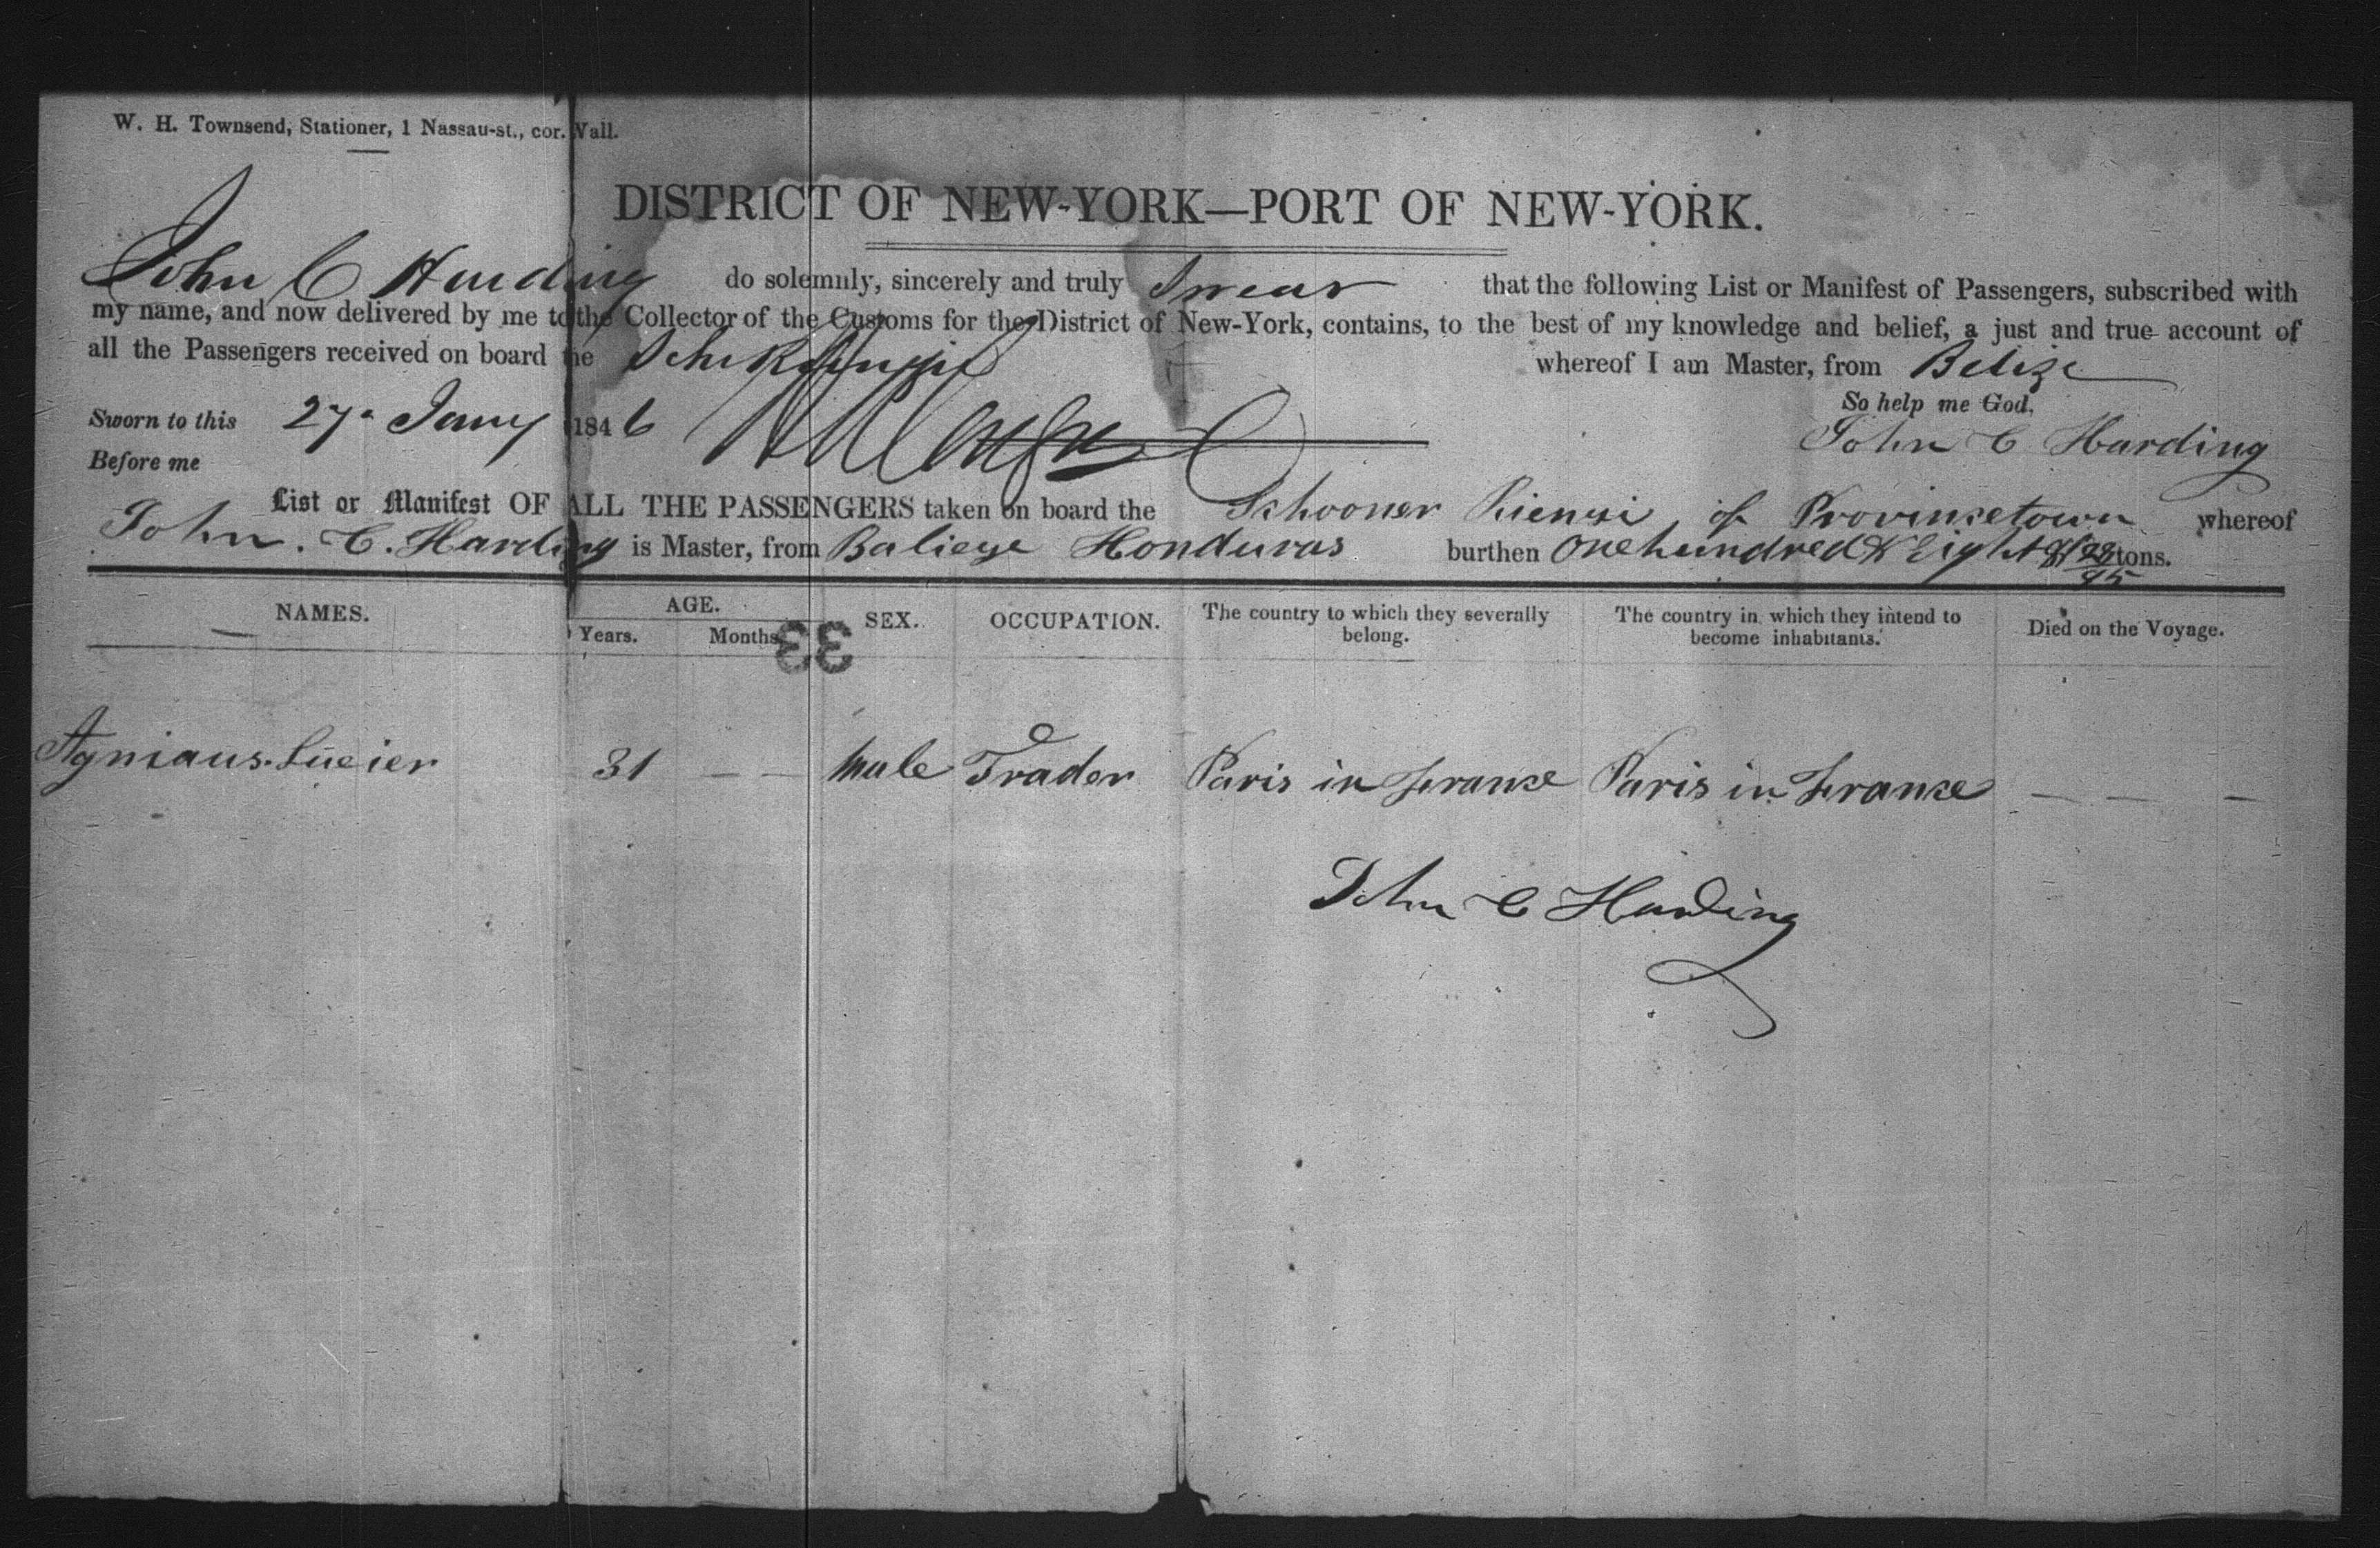 W. H. Townsend, Stationer, 1 Nassau-st., cor. Wall.
DISTRICT OF NEW-YORK—PORT OF NEW-YORK.
John C Harding do solemnly, sincerely and truly Swear that the following List or Manifest of Passengers, subscribed with
my name, and now delivered by me to the Collector of the Customs for the District of New-York, contains, to the best of my knowledge and belief, a just and true account of
all the Passengers received on board the Schr whereof I am Master, from Belize
So help me God,
Sworn to this 27 Jany 1846
John C Harding
Before me
List or Manifest OF ALL THE PASSENGERS taken on board the Schooner Rienzi, of Provinsetown whereof
John. C. Harding is Master, from Balieze Honduras burthen One hundred & Eight & 28/95 tons.
NAMES. AGE. SEX. OCCUPATION. The country to which they severally belong. The country in which they intend to become inhabitants. Died on the Voyage.
Years. Months.
33
Agniaus. Lueier 31 — — Male Trader Paris in Franse Paris in Franse — — —
John C Harding